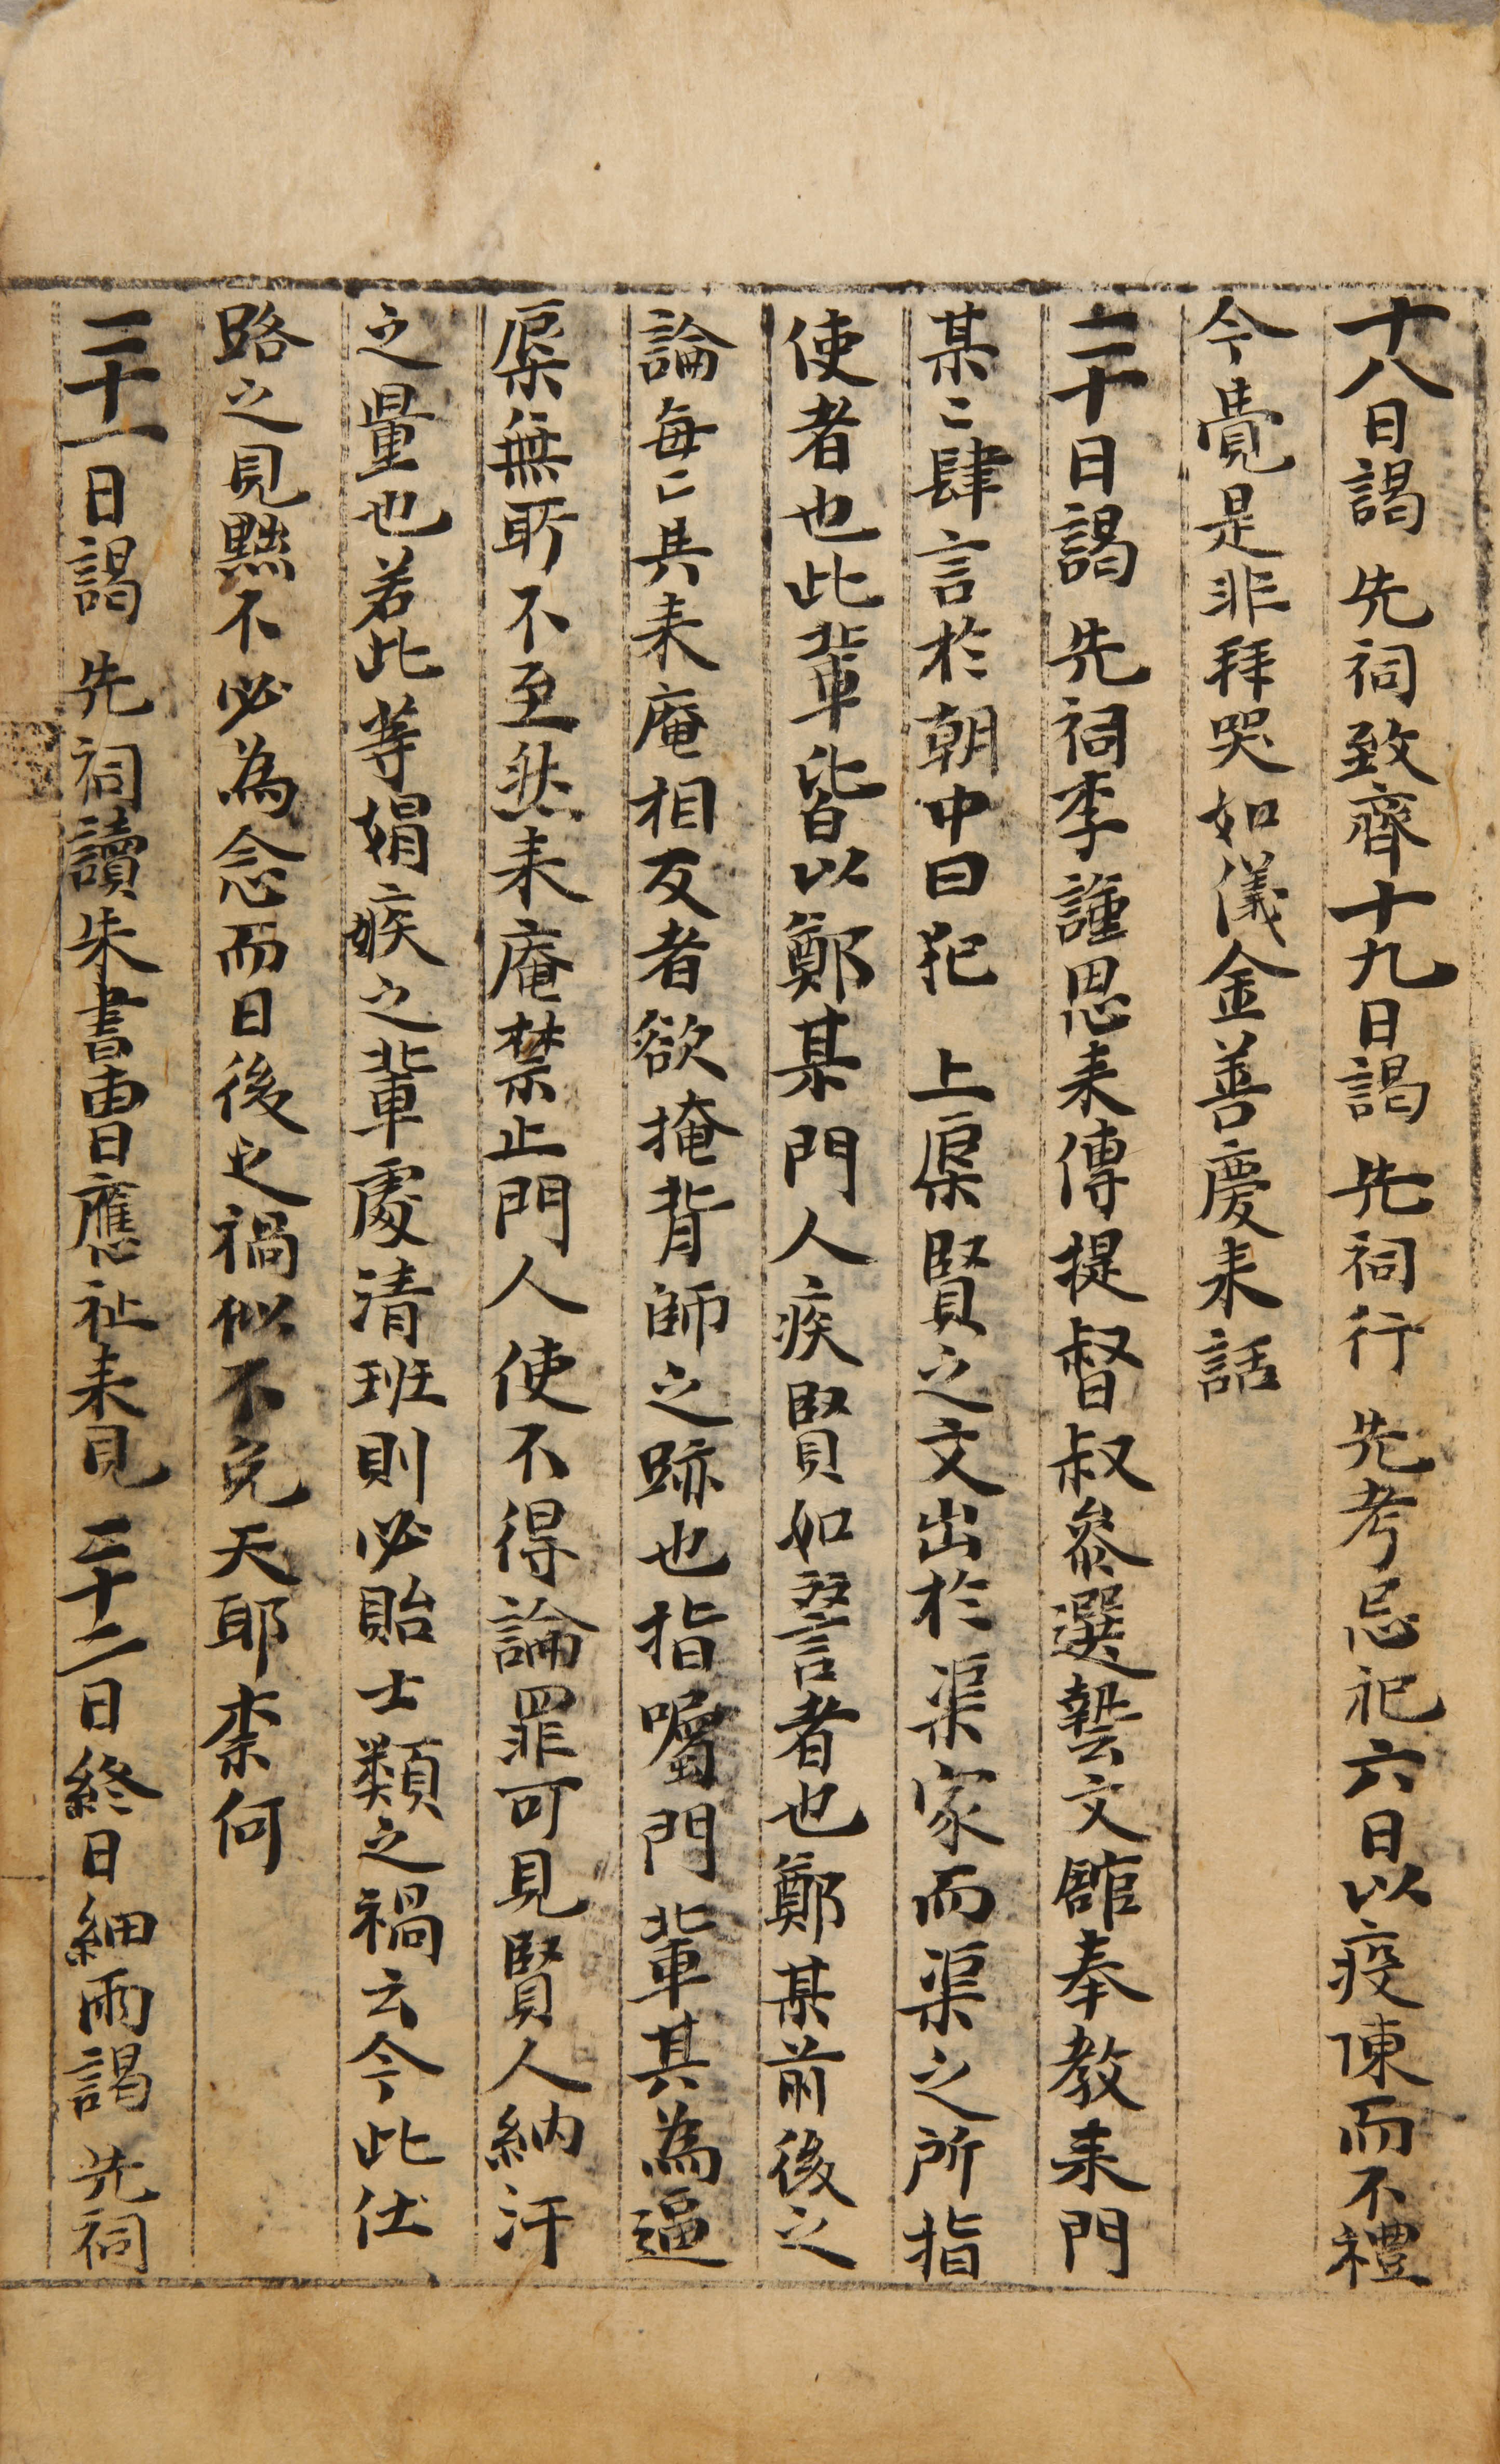 十八日謁 先祠致齊十九日謁 先祠行 先考忌祀六日以疫陳而不禮
今覺是非拜哭如儀金善慶来話
二十日謁 先祠李謹思来傳提督叔叅選藝文館奉教来門
某〻肆言於朝中曰犯 上屎賢之文出於渠家而渠之所指
使者也此輩皆以鄭某門人疾賢如讐者也鄭某前後之
論每〻與来庵相反者欲掩背師之跡也指囑門輩其為逼
屎無所不至然来庵禁止門人使不得論罪可見賢人納汙
之量也若此等娼嫉之輩處清班則必貽士類之禍云今此仕
路之見黜不必為念而日後之禍似不免天耶柰何
二十一日謁 先祠讀朱書曺應祉来見 二十二日終日細雨謁 先祠